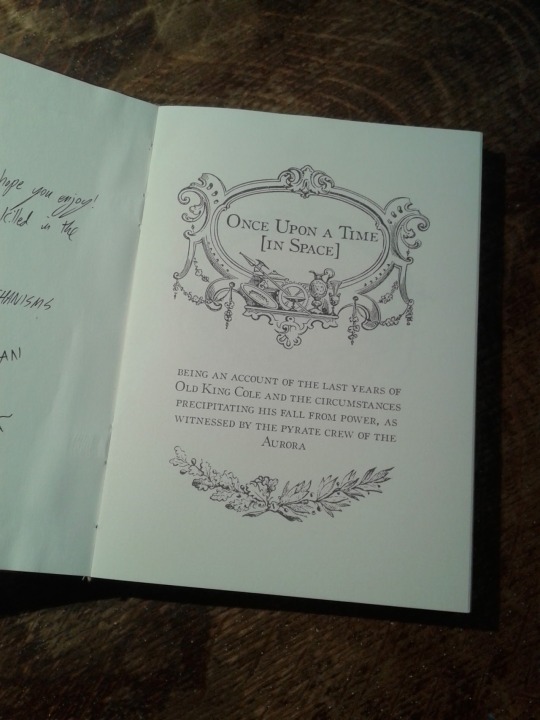 hope you enjoy!
killed in the
CHANISMS
AN
Once Upon a Time
[in Space]
being an account of the last years of
Old King Cole and the circumstances
precipitating his fall from power, as
witnessed by the pyrate crew of the
Aurora